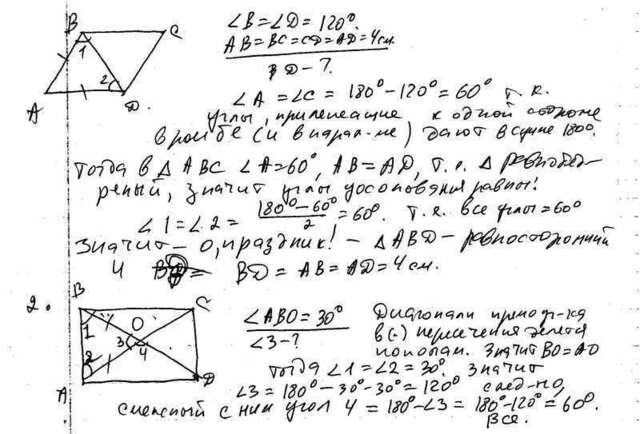 B C
1
2
A D
∠B = ∠D = 120°.
AB = BC = CD = AD = 4 см.
BD - ?
∠A = ∠C = 180° - 120° = 60° т.к.
углы, прилежащие к одной стороне
в ромбе (и в парал-ме) дают в сумме 180°.
Тогда в △ ABC ∠A = 60°, AB = AD, т.е. △ равнобед-
ренный, значит углы у основания равны!
∠1 = ∠2 = (180° - 60°)/2 = 60°. т.е. все углы = 60°
Значит - о, праздник! - △ABD - равносторонний
и BD = AB = AD = 4 см.
2.
B C
1 O
3 4
2
A D
∠ABO = 30°
∠3 - ?
Диагонали прямоуг-ка
в (·) пересечения делятся
пополам. Значит BO = AO
тогда ∠1 = ∠2 = 30°. Значит
∠3 = 180° - 30° - 30° = 120° след-но,
смежный с ним угол 4 = 180° - ∠3 = 180° - 120° = 60°.
Все.